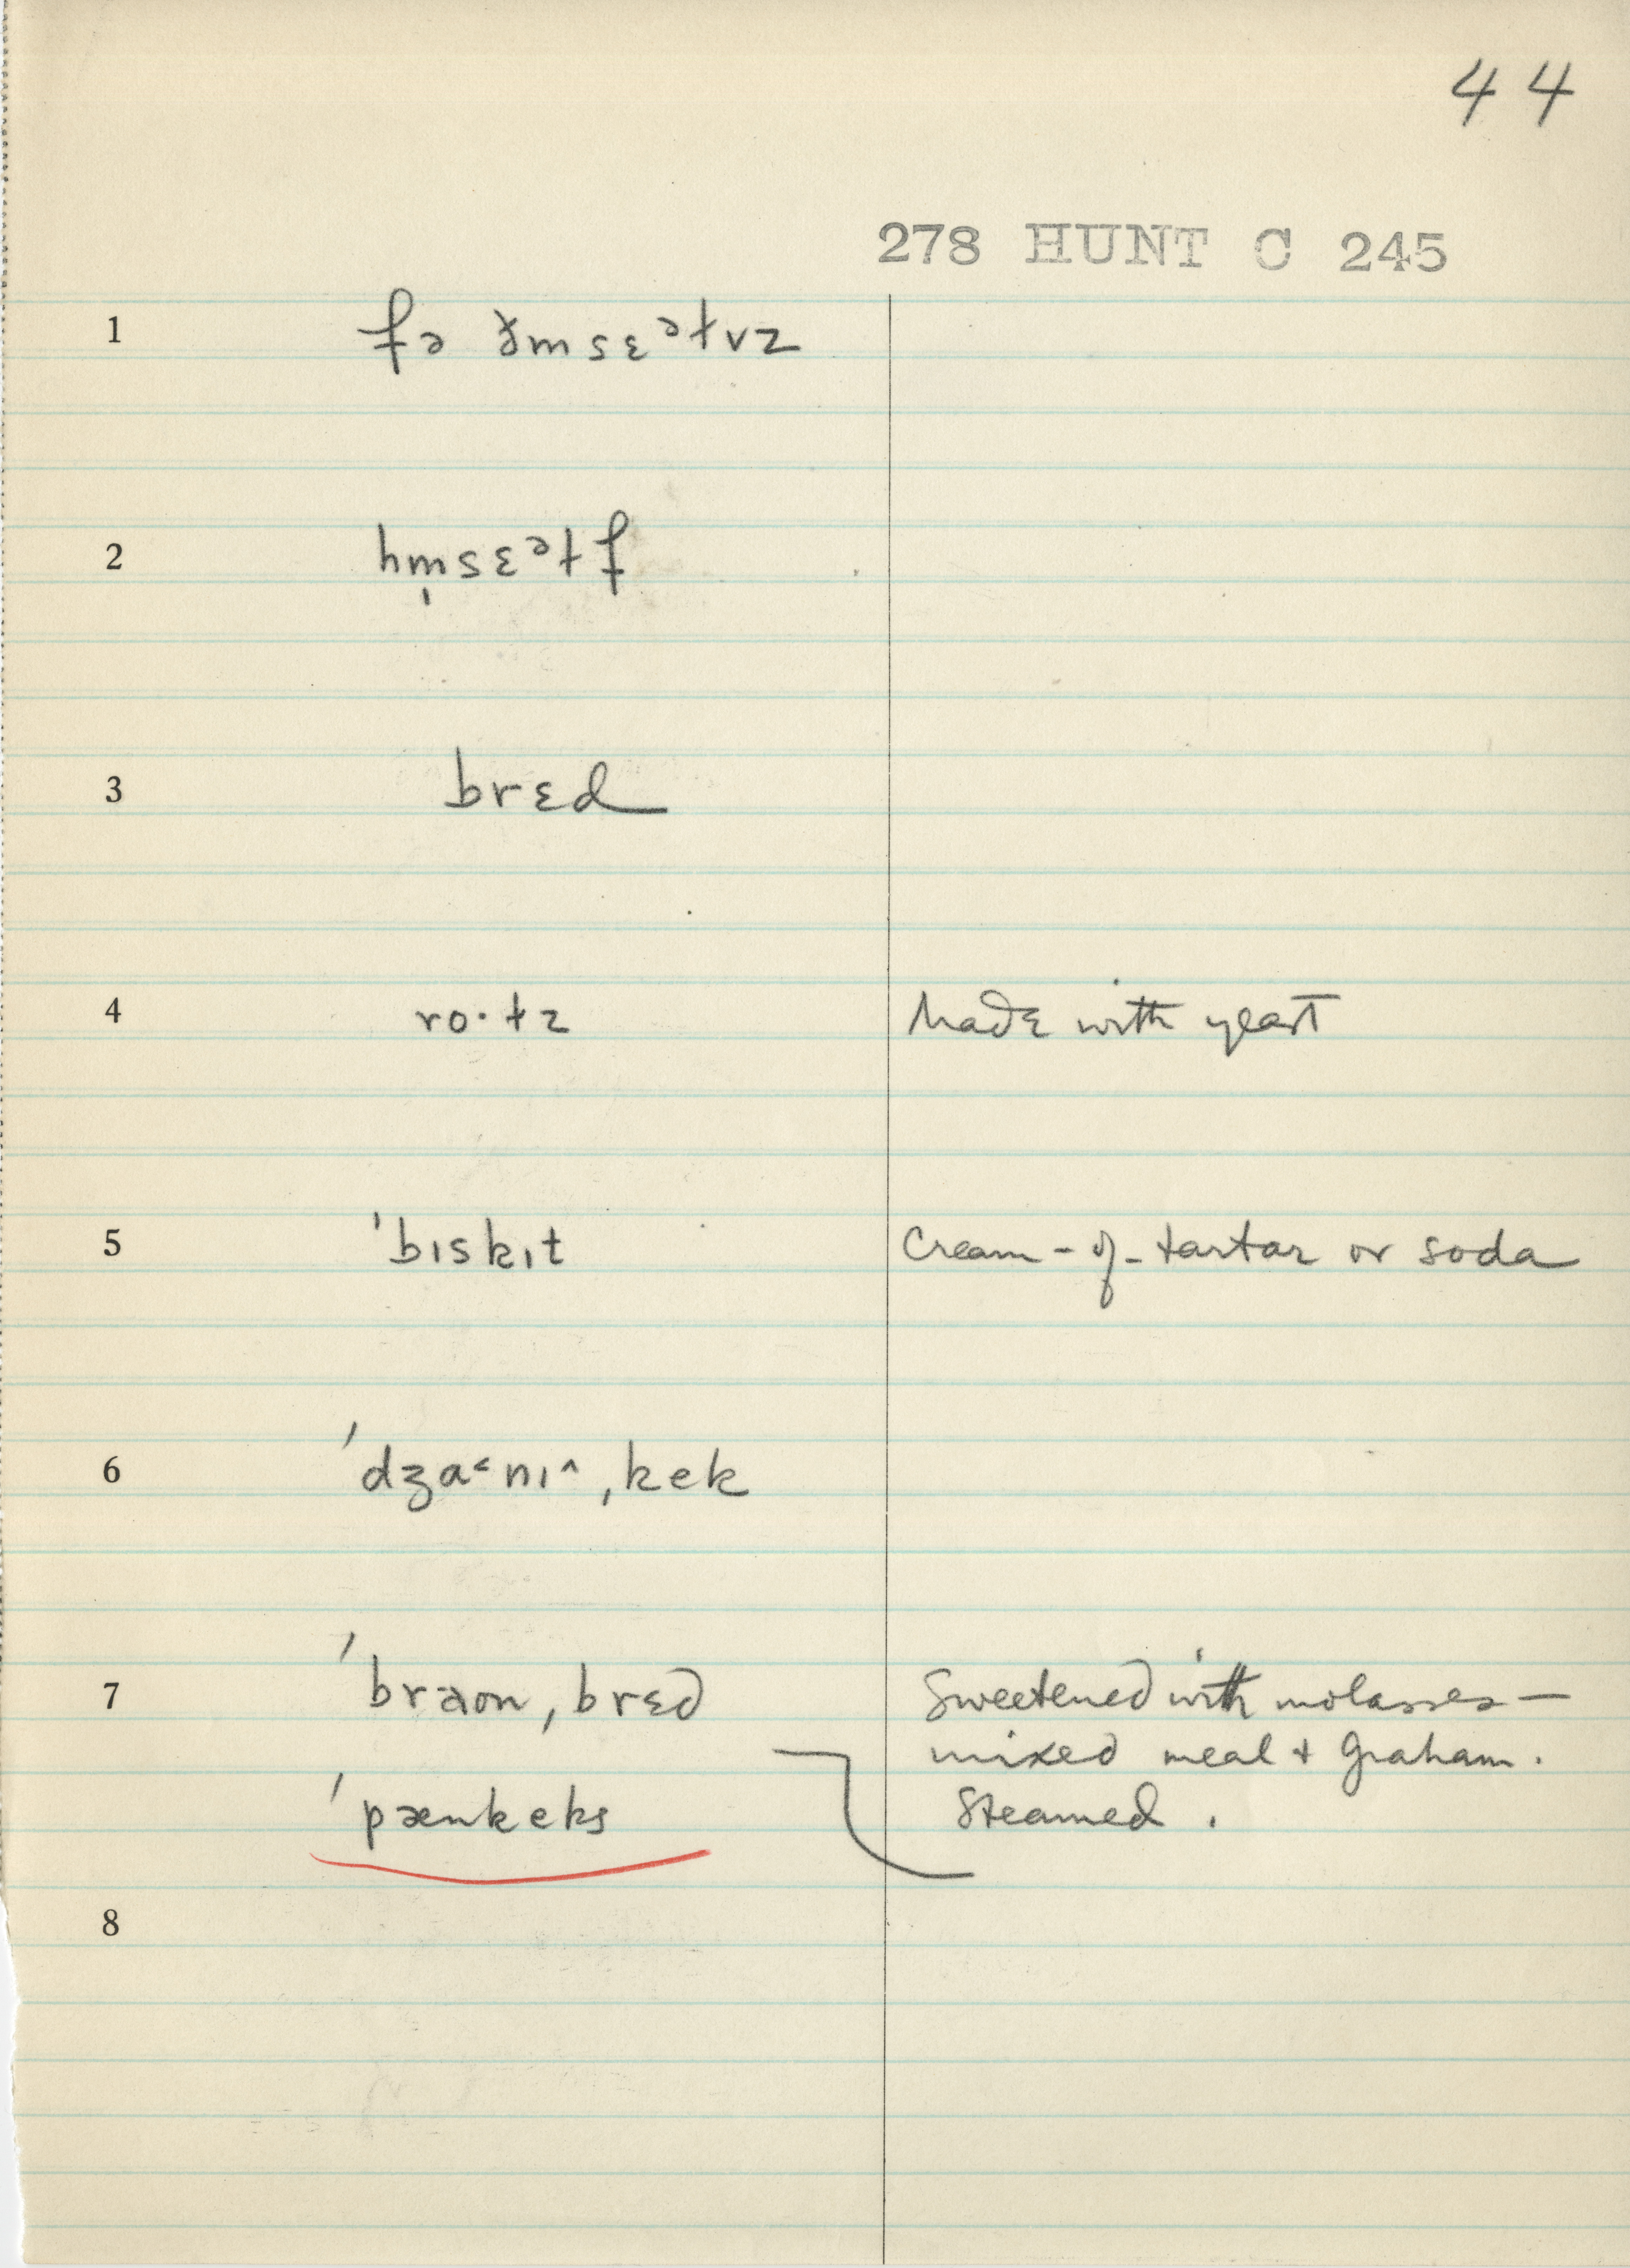 44
278 HUNT C 245
1 fə ðmsɛᵊɫvz
2 hm̩sɛᵊɫf
3 brɛd
4 ro·ɫz Made with yeast
5 ˈbɪskɪt Cream-of-tartar or soda
6 ˈdʒa˂nɪ˄ˌkek
7 ˈbraonˌbrɛd Sweetened with molasses —
mixed meal + graham.
ˈpænkeks Steamed.
8